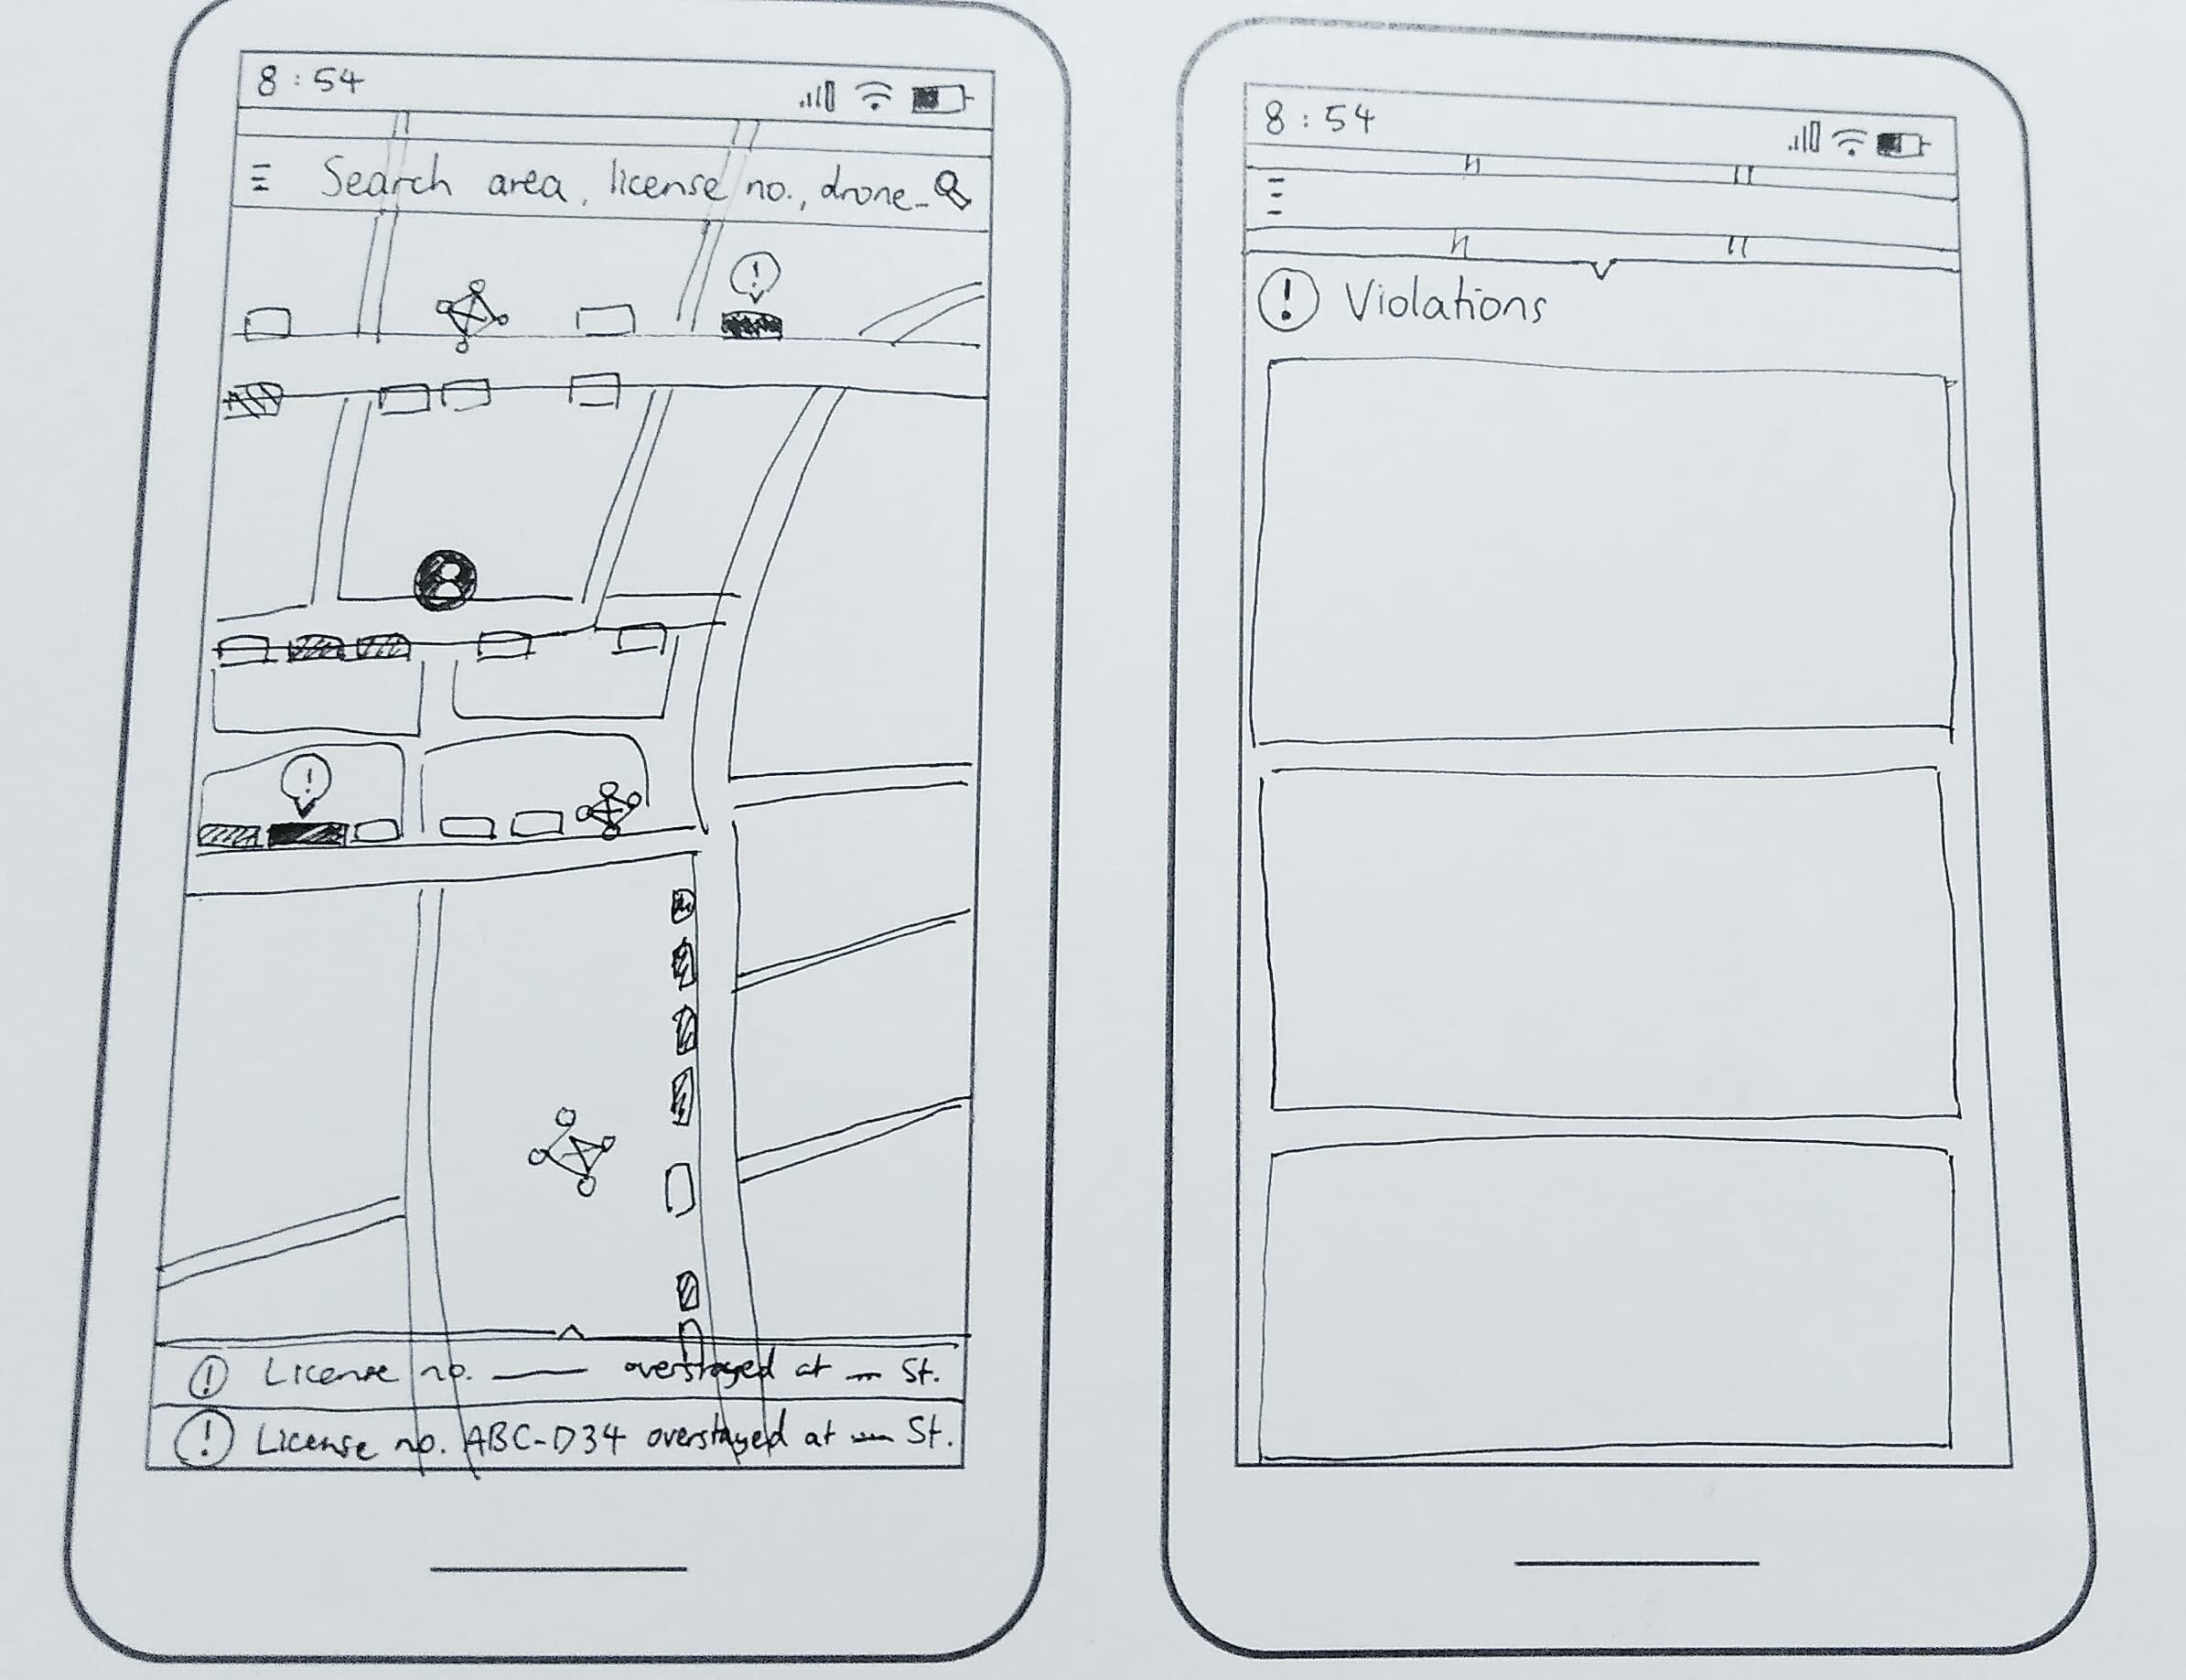 8:54
Search area, license no., drone
License no. overstayed at St.
License no. ABC-D34 overstayed at St.
8:54
! Violations